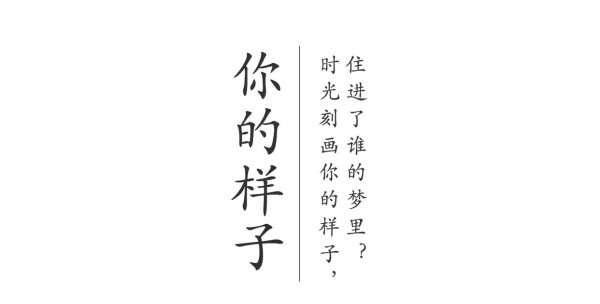 你的样子
时光刻画你的样子，
住进了谁的梦里？